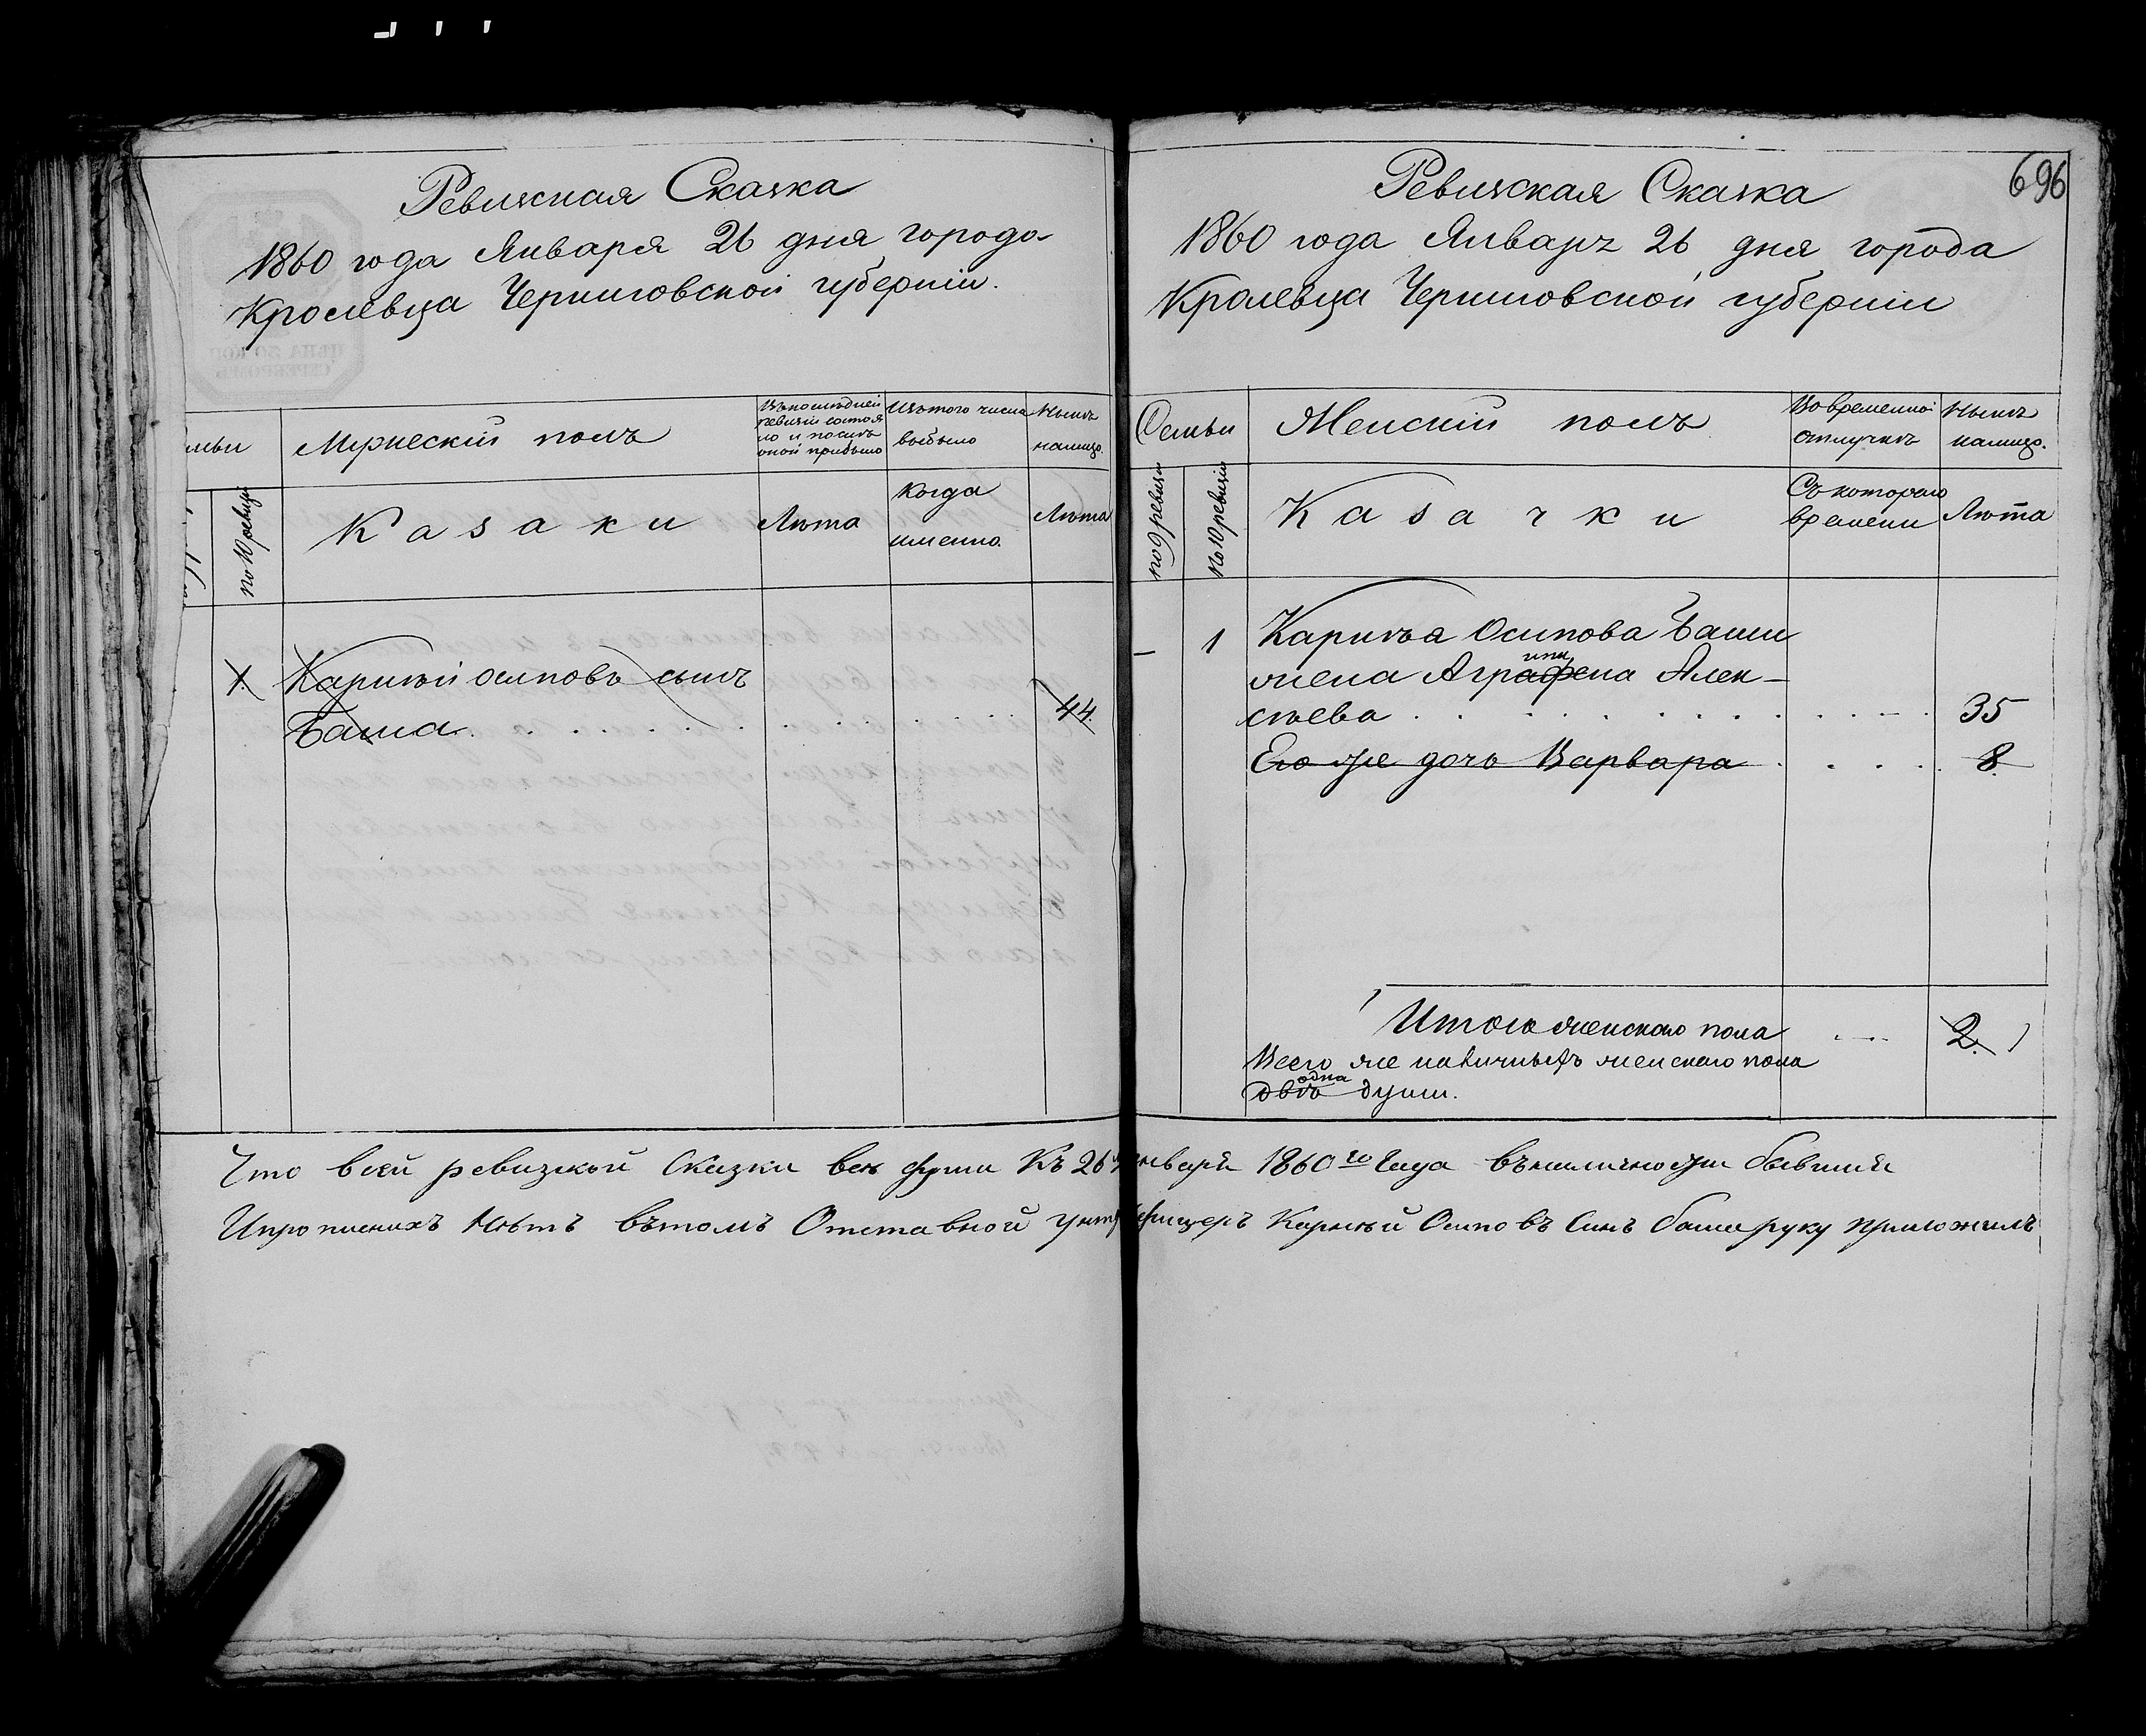 Ревизская Сказка
1860 года Января 26 дня города
Кролевца Черниговской губерніи.
Мужескій полъ
Въ последней ревизіи состояло и после оной прибыло
Изъ того числа выбыло
Ныне налицо.
по 10 ревизіи
Казаки
Лѣта
Когда именно.
Лѣта
1. Карпѣй Осиповъ сынъ
Баша . . . . . . . 44.
696
Ревизская Сказка
1860 года Январъ 26 дня города
Кролевца Черниговской губерніи
Семьи
Женскій полъ
Во временной отлучкѣ
Нынѣ налицо.
по 9 ревизіи
по 10 ревизіи
Казачки
Съ котораго времени
Лѣта
1 Карпѣя Осипова Баши
жена Аграфена Алек-
сѣева . . . . . . . 35
Его же дочь Варвара . . . . 8.
Итого женскаго пола .... 2. 1
Всего же наличныхъ женскаго пола
одна
двѣ души.
Что в сей ревизской Сказки все души Къ 26 Января 1860го Года въналичности бывшия
Ипрописних Нѣтъ вътомъ Отставной унтерофицеръ Карпѣй Осиповъ Синъ баша руку приложилъ